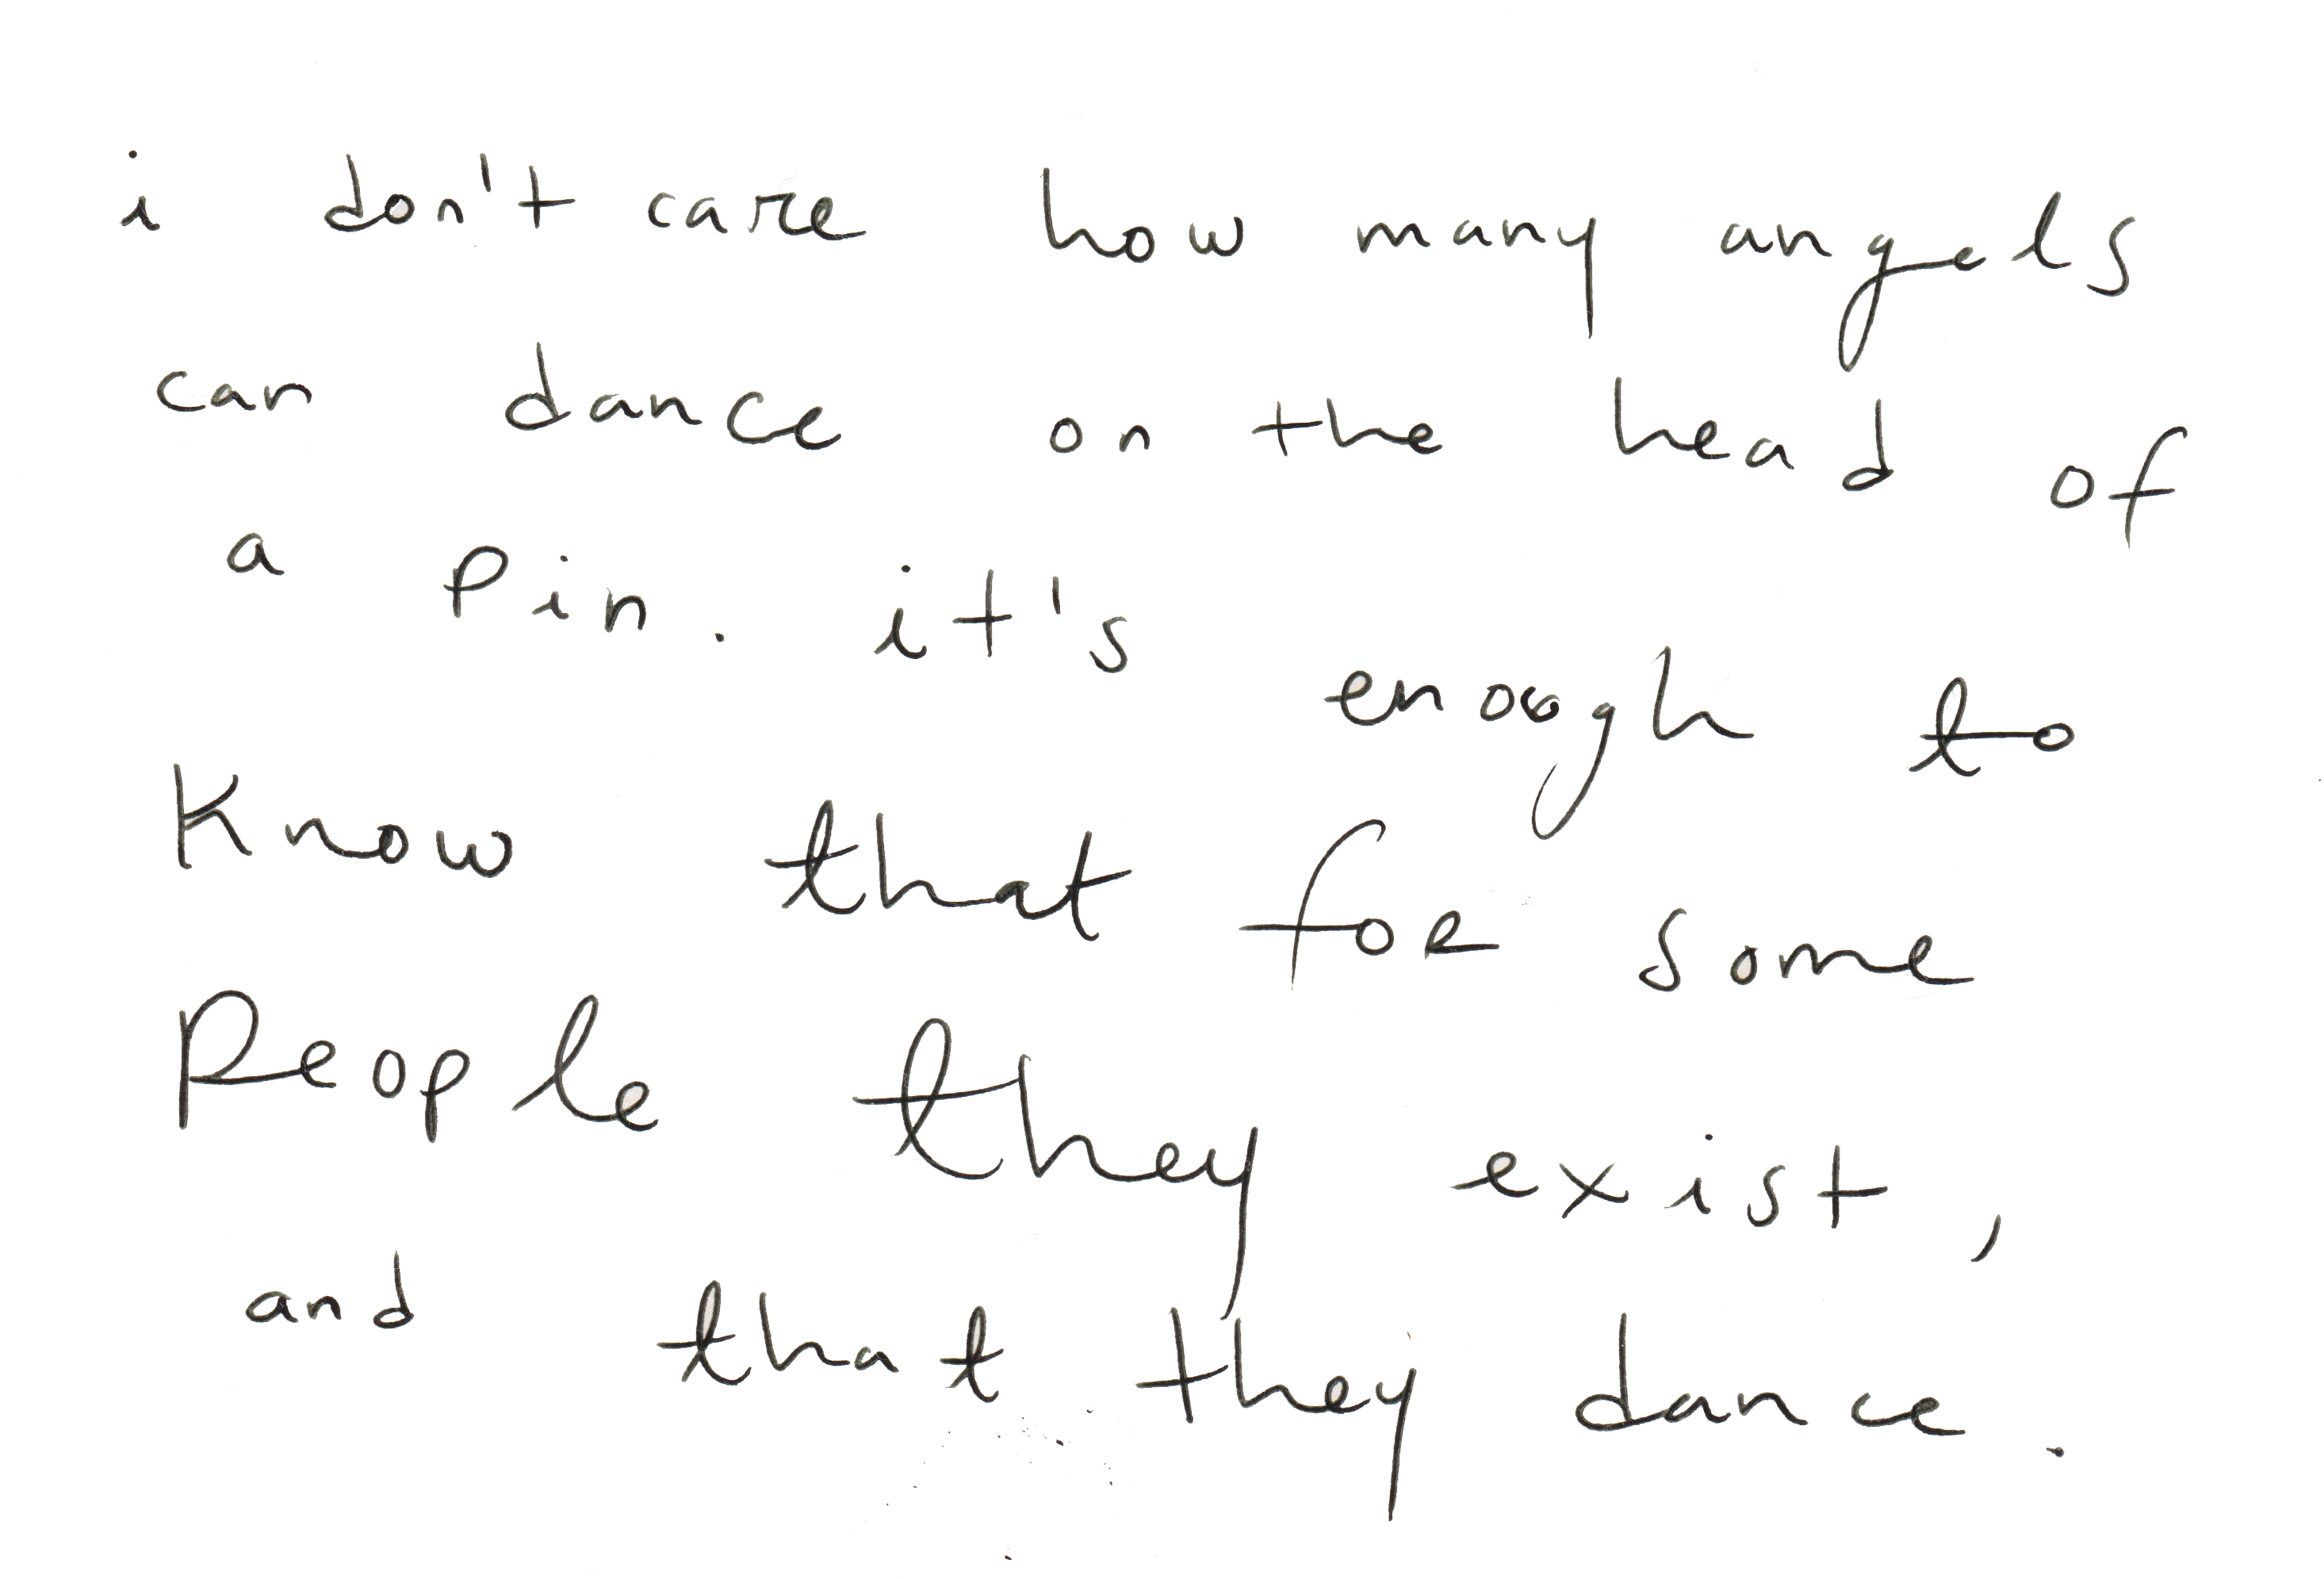 i don't care how many angels
can dance on the head of
a pin. it's enough to
know that for some
people they exist,
and that they dance.